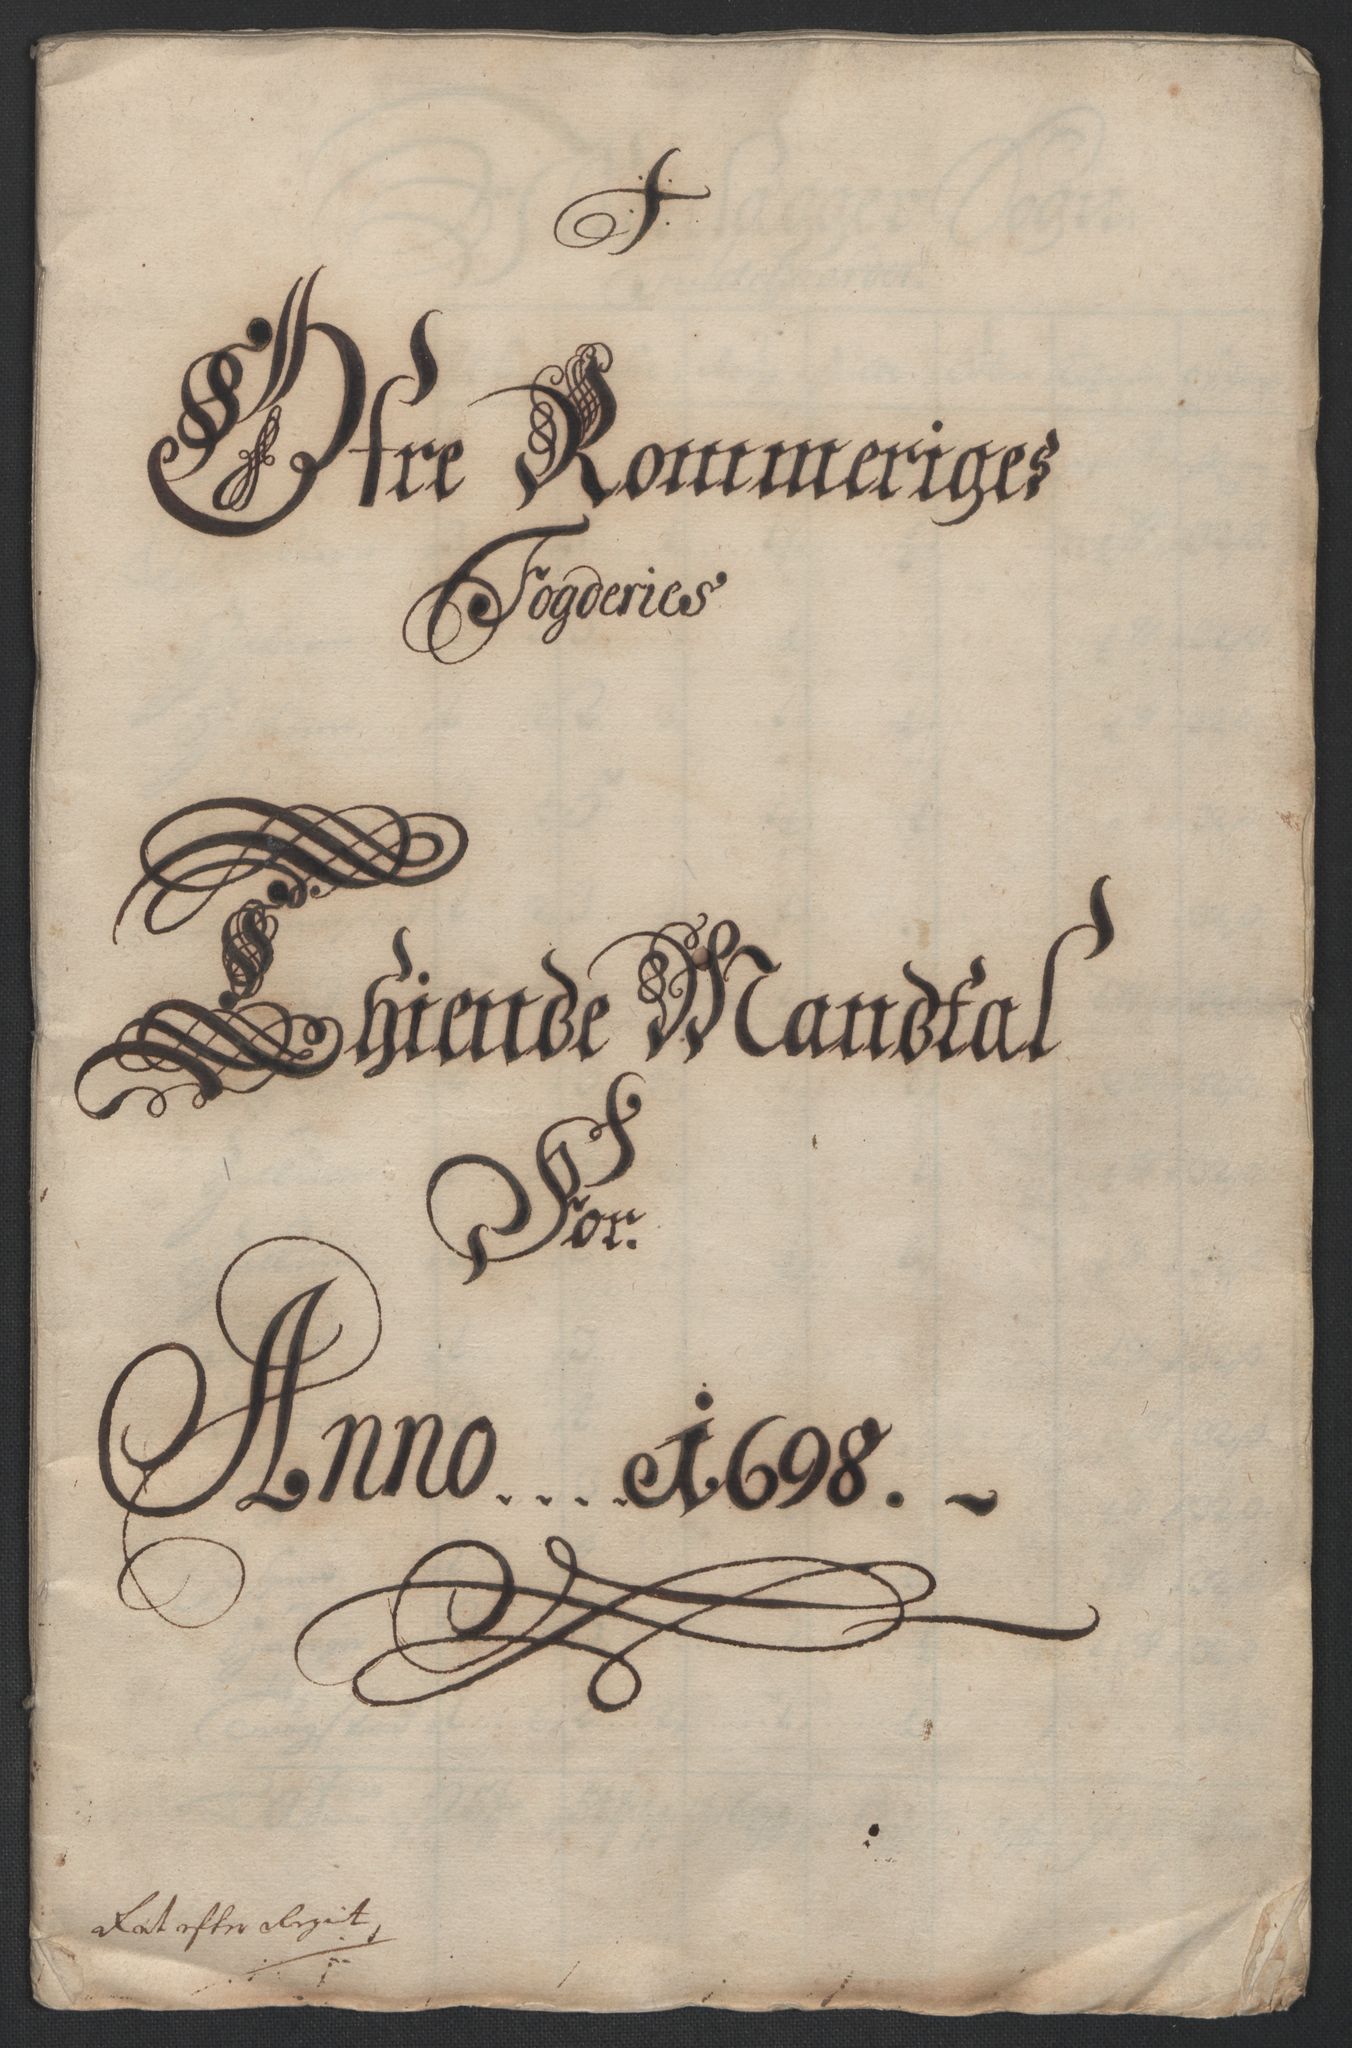 Øfre Rommeriges
Fogderies
Thiende Mandtal
For.
Anno .... 1698. ~